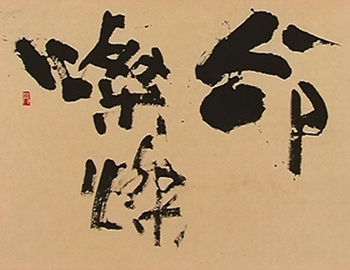 命
燦燦